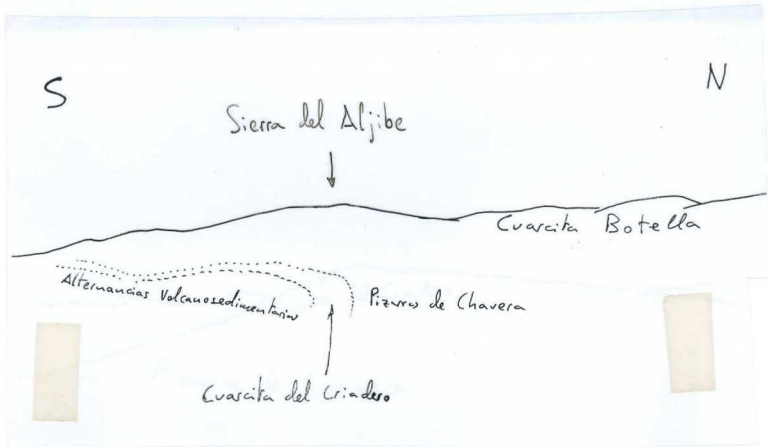 S
N
Sierra del Aljibe
Cuarcita Botella
Alternancias Volcanosedimentarias
Pizarras de Chavera
Cuarcita del Criadero